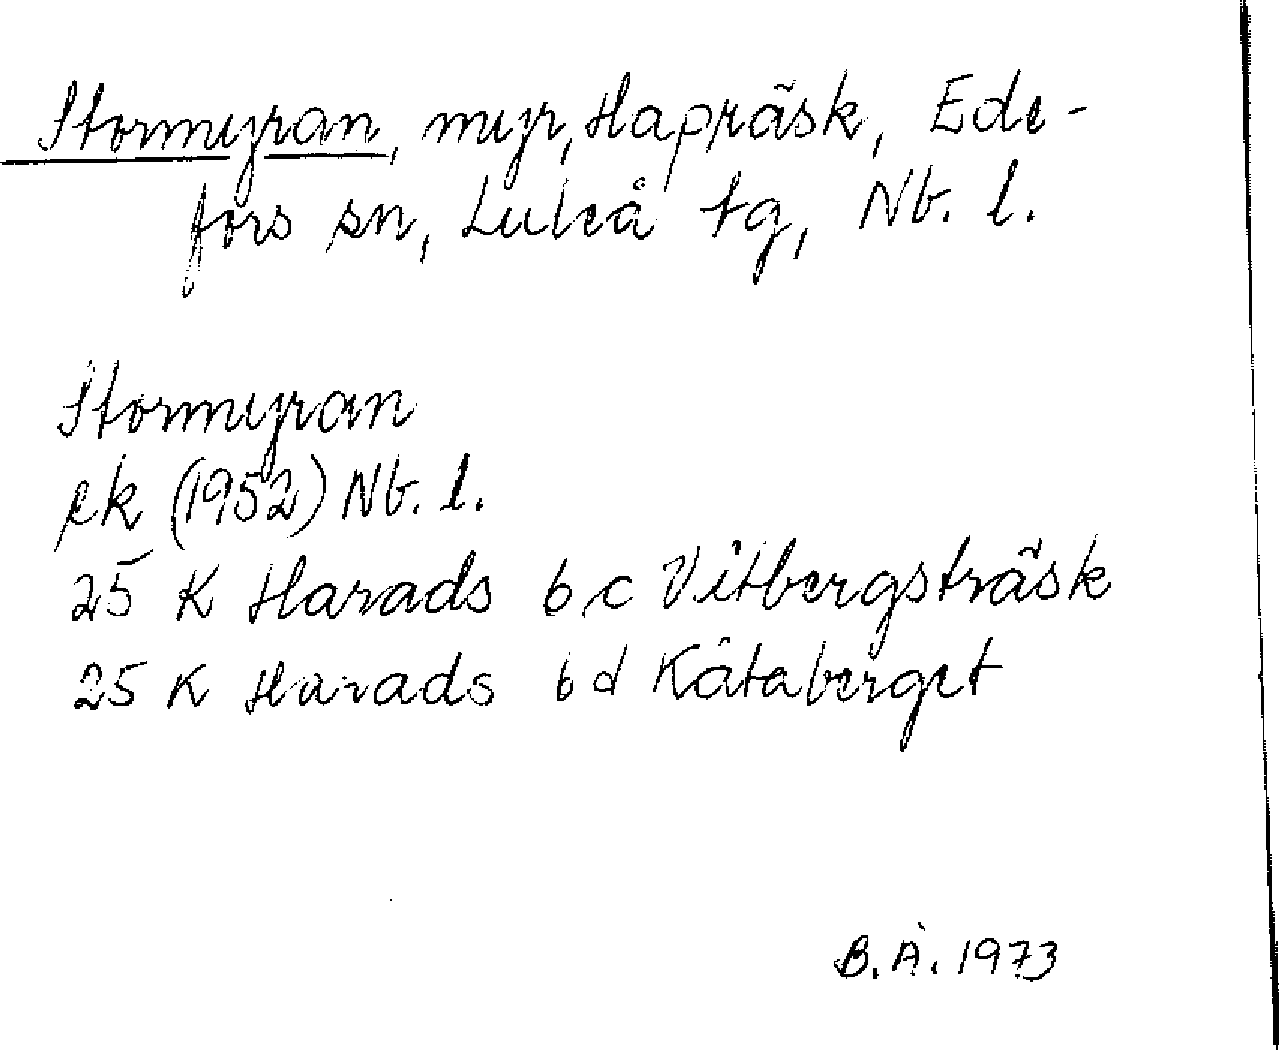 Stormyran, myr, Hapträsk, Ede-
fors sn, Luleå tg, Nb. l.
Stormyran
ek (1952) Nb. l.
25 K Harads 6 c Vitbergsträsk
25 K Harads 6 d Kåtaberget
B.Å. 1973